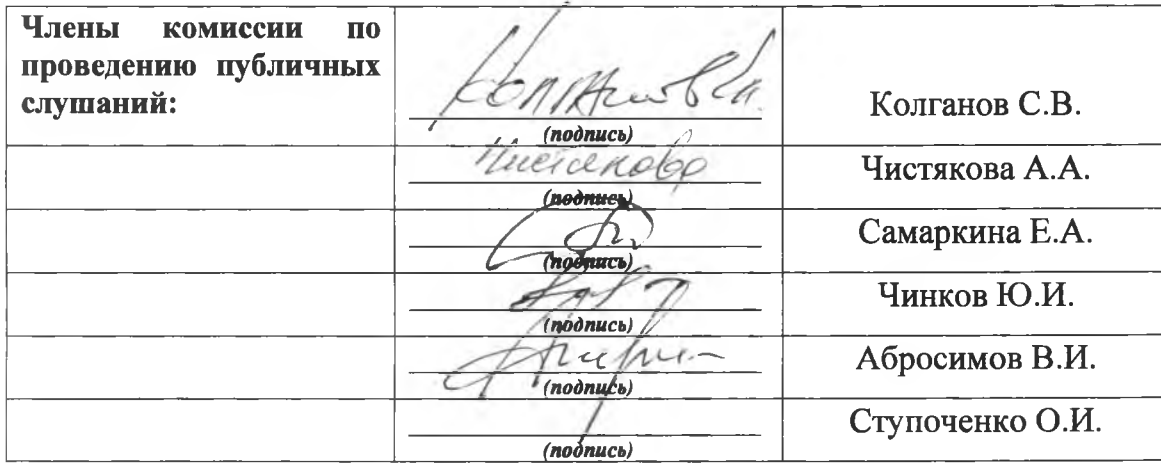 Члены комиссии по
проведению публичных
слушаний:
Колганов С.В.
(подпись)
Чистякова
Чистякова А.А.
(подпись)
Самаркина Е.А.
(подпись)
Чинков Ю.И.
(подпись)
Абросимов В.И.
(подпись)
Ступоченко О.И.
(подпись)